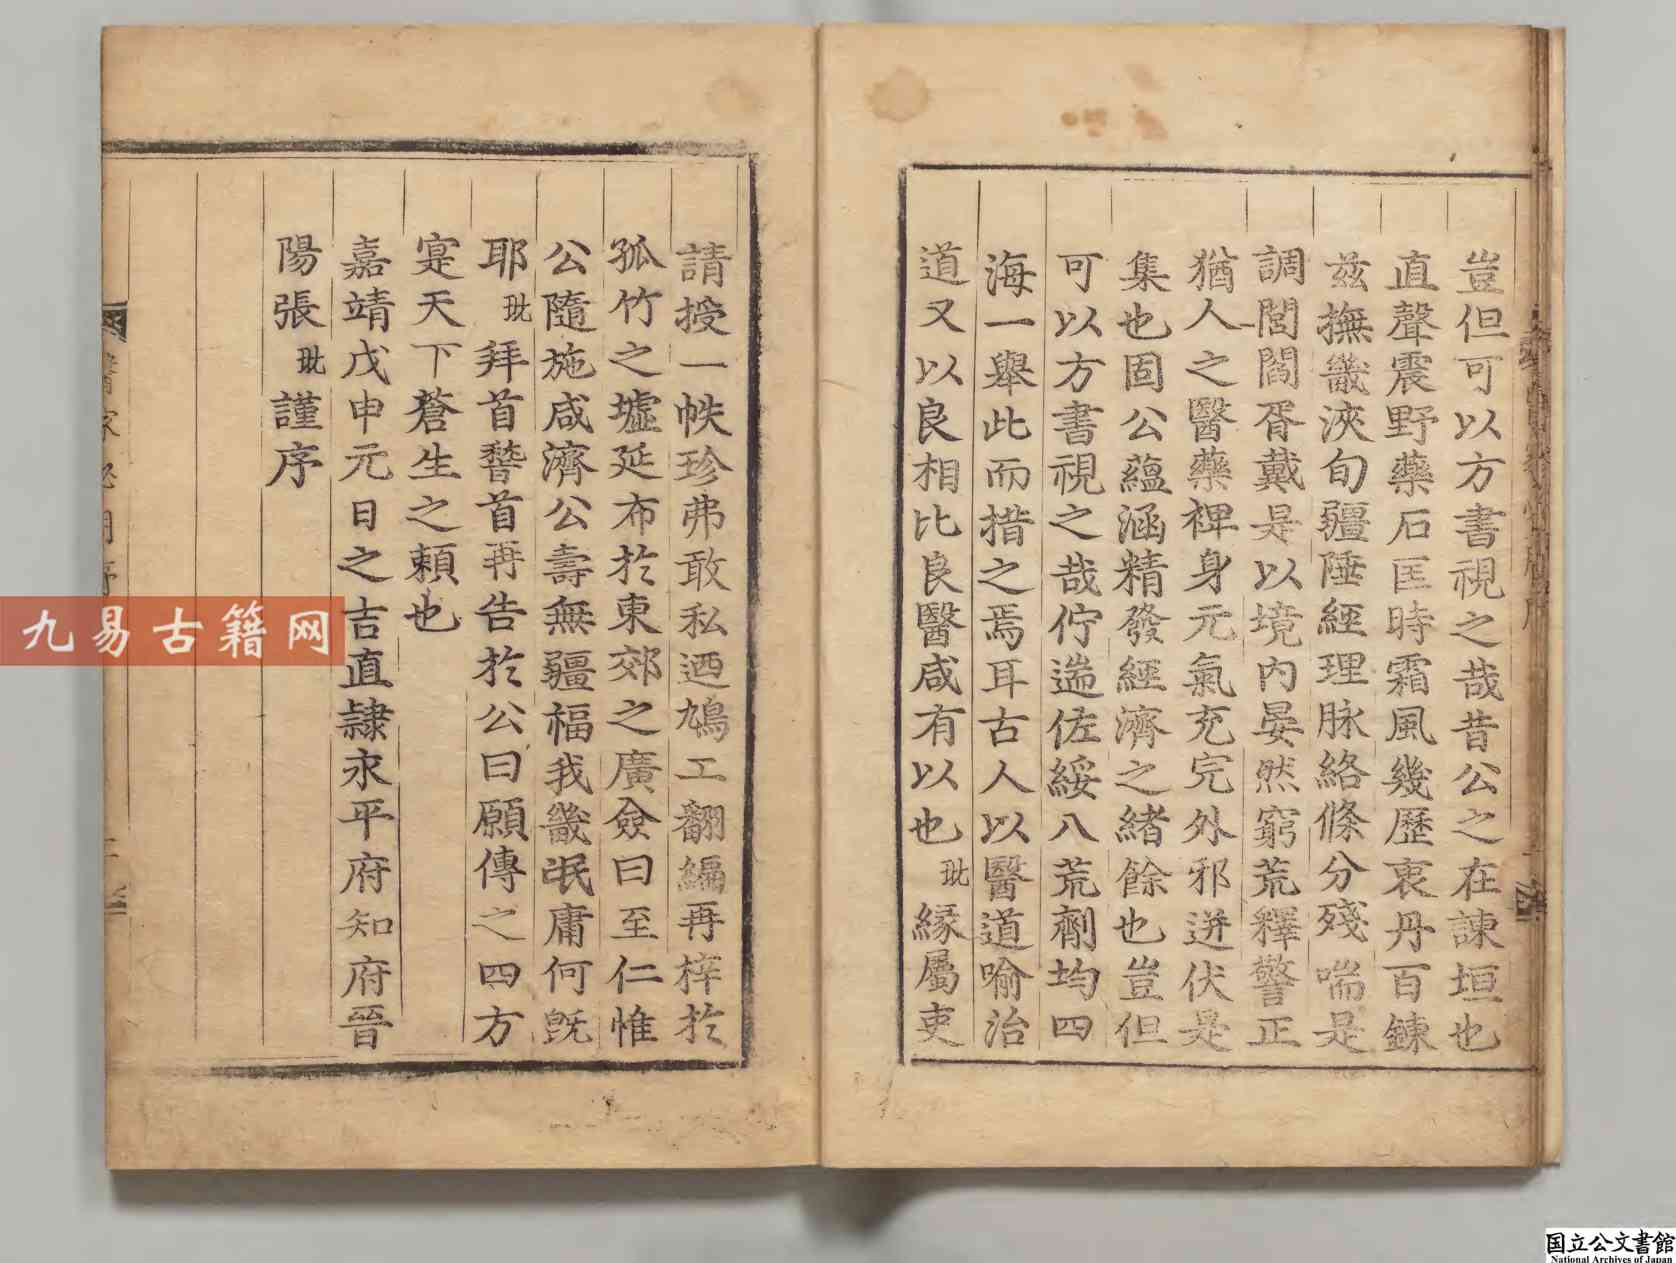 豈但可以方書視之哉昔公之在諫垣也
直聲震野藥石匡時霜風幾歷衷丹百鍊
茲撫畿浹旬疆陲經理脉絡條分殘喘是
調閭閻胥戴是以境內晏然窮荒釋警正
猶人之醫藥裨身元氣充完外邪迸伏是
集也固公蘊涵精發經濟之緒餘也豈但
可以方書視之哉佇耑佐綏八荒劑均四
海一舉此而措之焉耳古人以醫道喻治
道又以良相比良醫咸有以也玭緣屬吏
請授一帙珍弗敢私迺鳩工翻編再梓於
孤竹之墟延布於東郊之廣僉曰至仁惟
公隨施咸濟公壽無疆福我畿氓庸何旣
耶玭拜首嚭首再告於公曰願傳之四方
寔天下蒼生之賴也
嘉靖戊申元日之吉直隸永平府知府晉
陽張玭謹序
九易古籍网
国立公文書館
National Archives of Japan